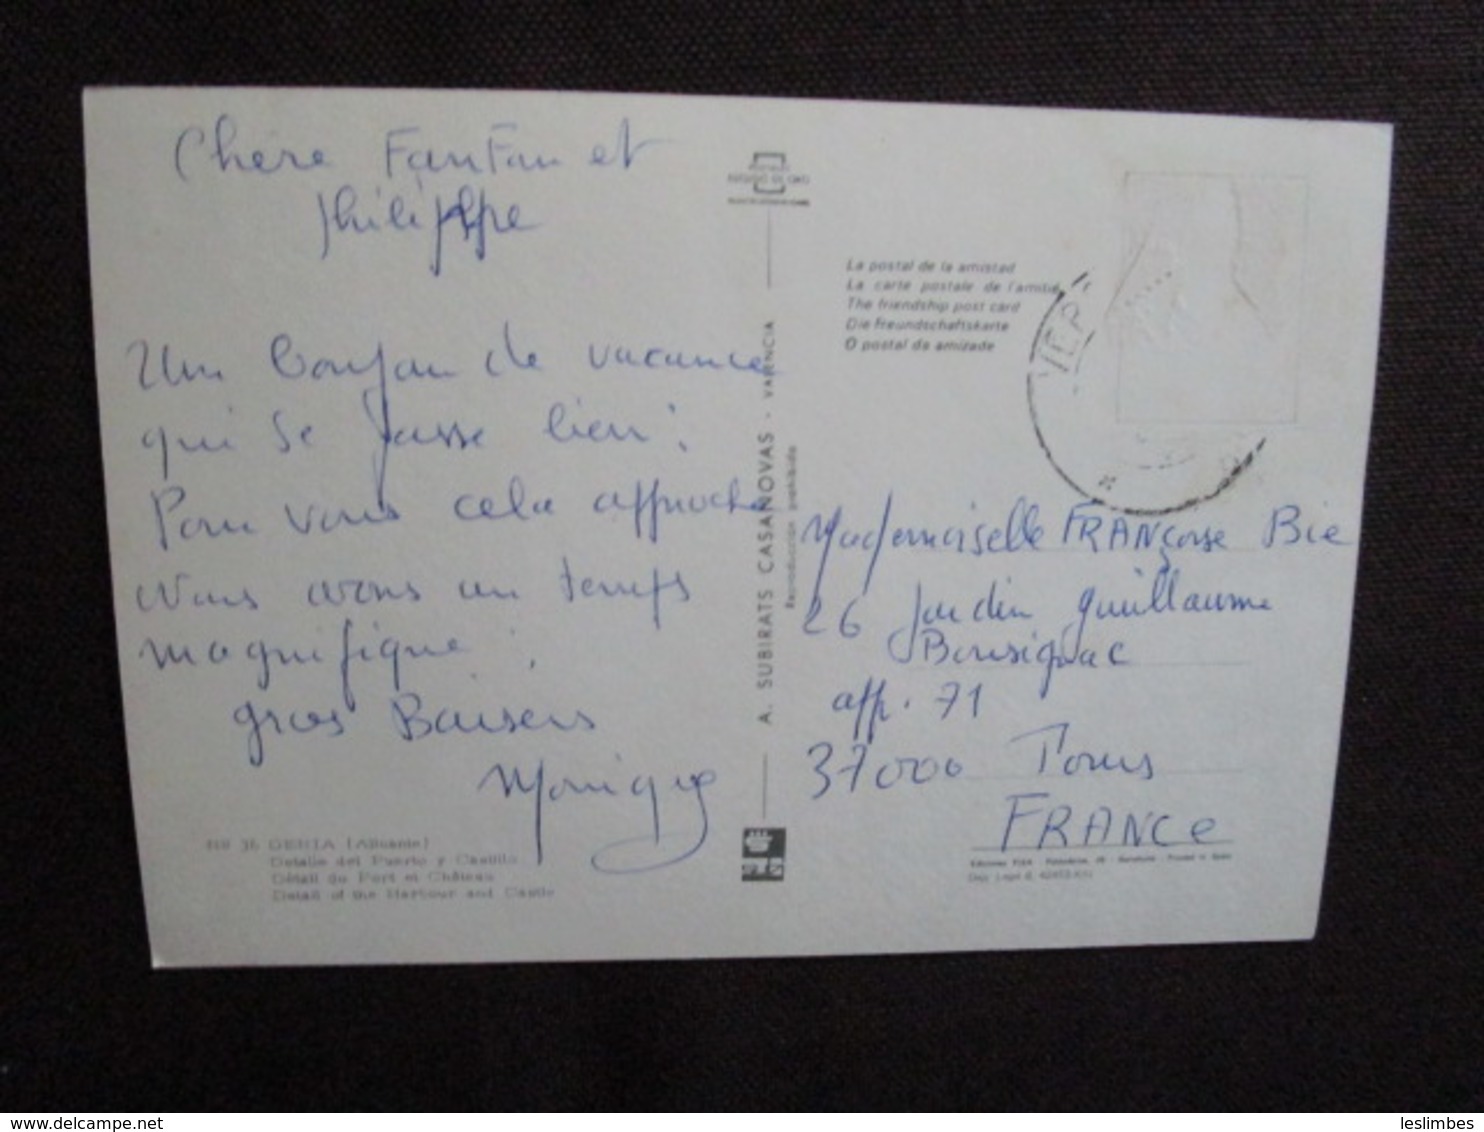 Chère FanFan et
Philippe
Un bonjour de vacance
qui se passe bien.
Pour vous cela approche
Nous avons un temps
magnifique.
gros Baisers
Monique
Nº 36 DENIA (Alicante)
Detalle del Puerto y Castillo
Détail du Port et Château
Detail of the Harbour and Castle
A. SUBIRATS CASANOVAS - VALENCIA
Reproducción prohibida
La postal de la amistad
La carte postale de l'amitié
The friendship post card
Die freundschaftskarte
O postal da amizade
Mademoiselle FRANÇoise Bie
26 Jardin Guillaume
Bousignac
app. 71
37000 Tours
FRANCE
delcampe.net
leslimbes